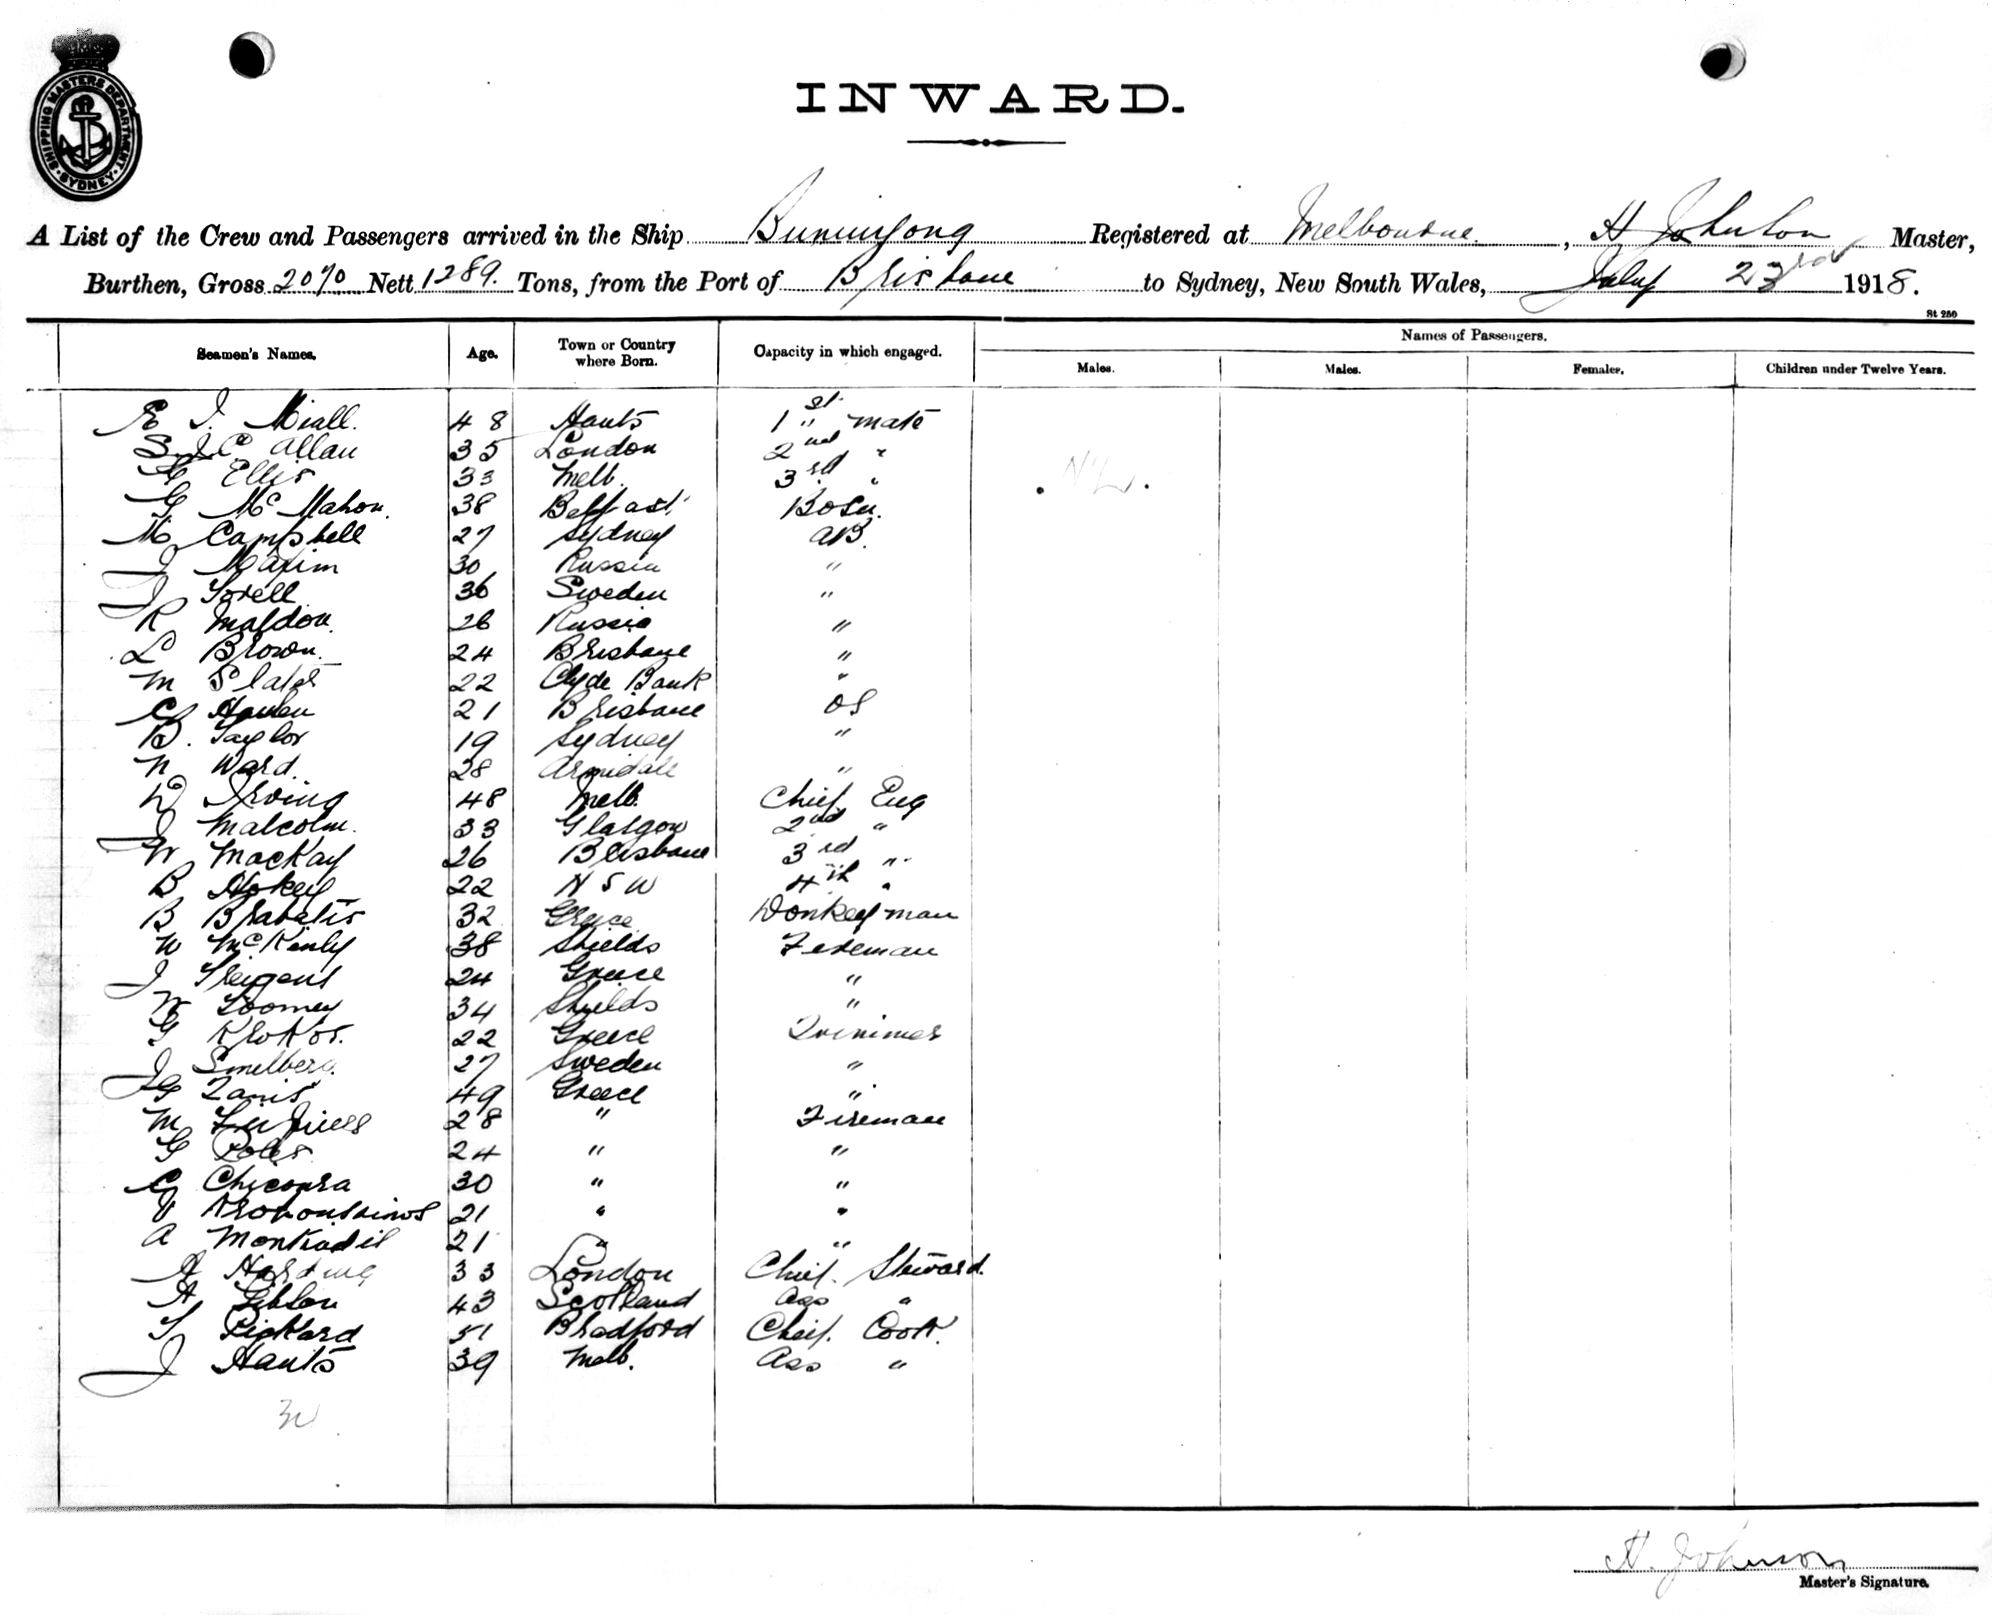 SHIPPING MASTERS DEPARTMENT
SYDNEY
INWARD.
A List of the Crew and Passengers arrived in the Ship Buninyong Registered at Melbourne, H Johnson Master,
Burthen, Gross 2070 Nett 1289. Tons, from the Port of Brisbane to Sydney, New South Wales, July 23rd 1918.
St 250
Seamen's Names. Age. Town or Country where Born. Capacity in which engaged. Names of Passengers.
Males. Males. Females. Children under Twelve Years.
E J. Miall. 48 Hants 1st " mate
S J C Allan 35 London 2nd "
Ellis 33 Melb. 3rd "
G McMahon. 38 Belfast Bosn.
M Campbell 27 Sydney AB.
J Maxim 30 Russia "
J Sorell 36 Sweden "
R Maldon. 26 Russia "
L Brown. 24 Brisbane "
M Slater 22 Clyde Bank "
C 21 Brisbane OS
B. Taylor 19 Sydney "
N Ward. 28 Armidale "
D Irving 48 Melb. Chief Eng
J Malcolm. 33 Glasgow 2nd "
W MacKay 26 Brisbane 3rd "
B 22 N S W 4th "
B Brabatis 32 Greece Donkeyman
W McKinly 38 Shields Fireman
J 24 Greece "
W Toomey 34 Shields "
G Krokos. 22 Greece Trimmer
J Smelberg. 27 Sweden "
G Zanis 49 Greece "
M 28 " Fireman
G Poles 24 " "
C Chicopra 30 " "
21 " "
A Monkadis 21 " "
A Harding 33 London Chief. Steward.
A Gibson 43 Scotland Ass "
S Pickard 51 Bradford Chief. Cook.
J Hants 39 Melb. Ass "
H. Johnson
Master's Signature.